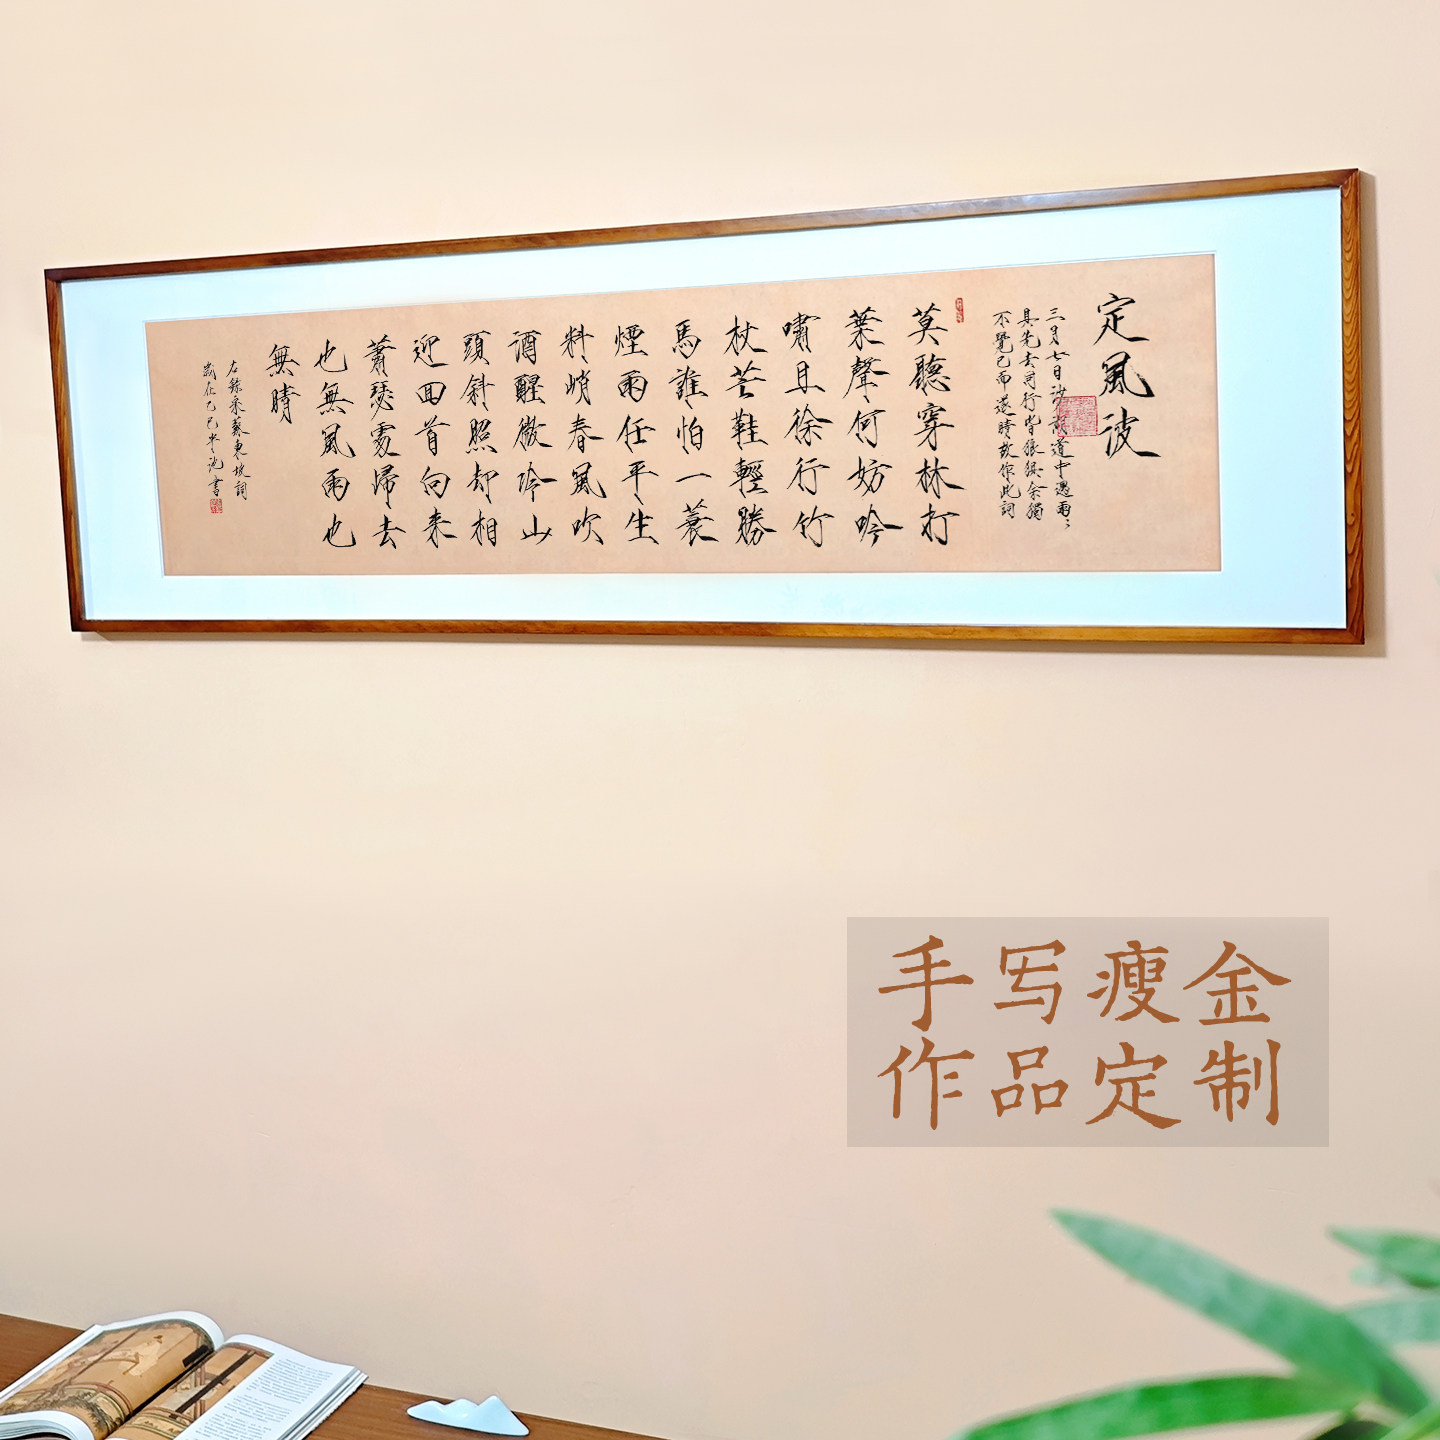 定風波
三月七日沙湖道中遇雨〻
具先去同行皆狼狽余獨
不覺已而遂晴故作此詞
莫聽穿林打
葉聲何妨吟
嘯且徐行竹
杖芒鞋輕勝
馬誰怕一蓑
煙雨任平生
料峭春風吹
酒醒微冷山
頭斜照却相
迎回首向来
蕭瑟處歸去
也無風雨也
無晴
右錄宋蘇東坡詞
歲在乙巳書
手写瘦金
作品定制